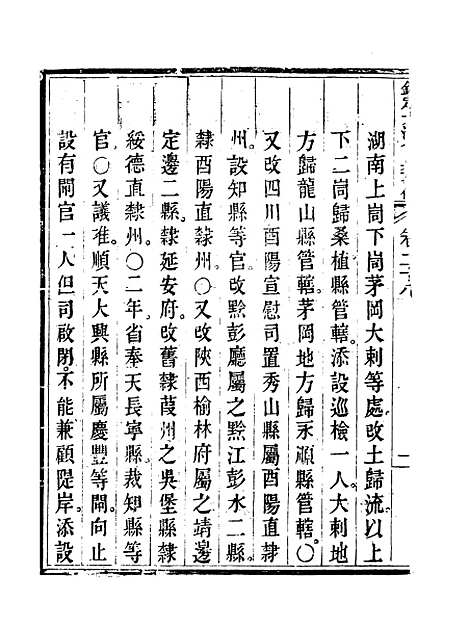 湖南上峝下峝茅岡大剌等處。改土歸流。以上
下二峝歸桑植縣管轄。添設巡檢一人。大剌地
方歸龍山縣管轄。茅岡地方歸永順縣管轄。〇
又改四川酉陽宣慰司置秀山縣屬酉陽直隸
州。設知縣等官。改黔彭廳屬之黔江彭水二縣。
隸酉陽直隸州。〇又改陝西榆林府屬之靖邊
定邊二縣。隸延安府。改舊隸葭州之吳堡縣隸
綏德直隸州。〇二年。省奉天長寧縣。裁知縣等
官。〇又議准。順天大興縣所屬慶豐等閘。向止
設有閘官一人。但司啟閉。不能兼顧隄岸。添設